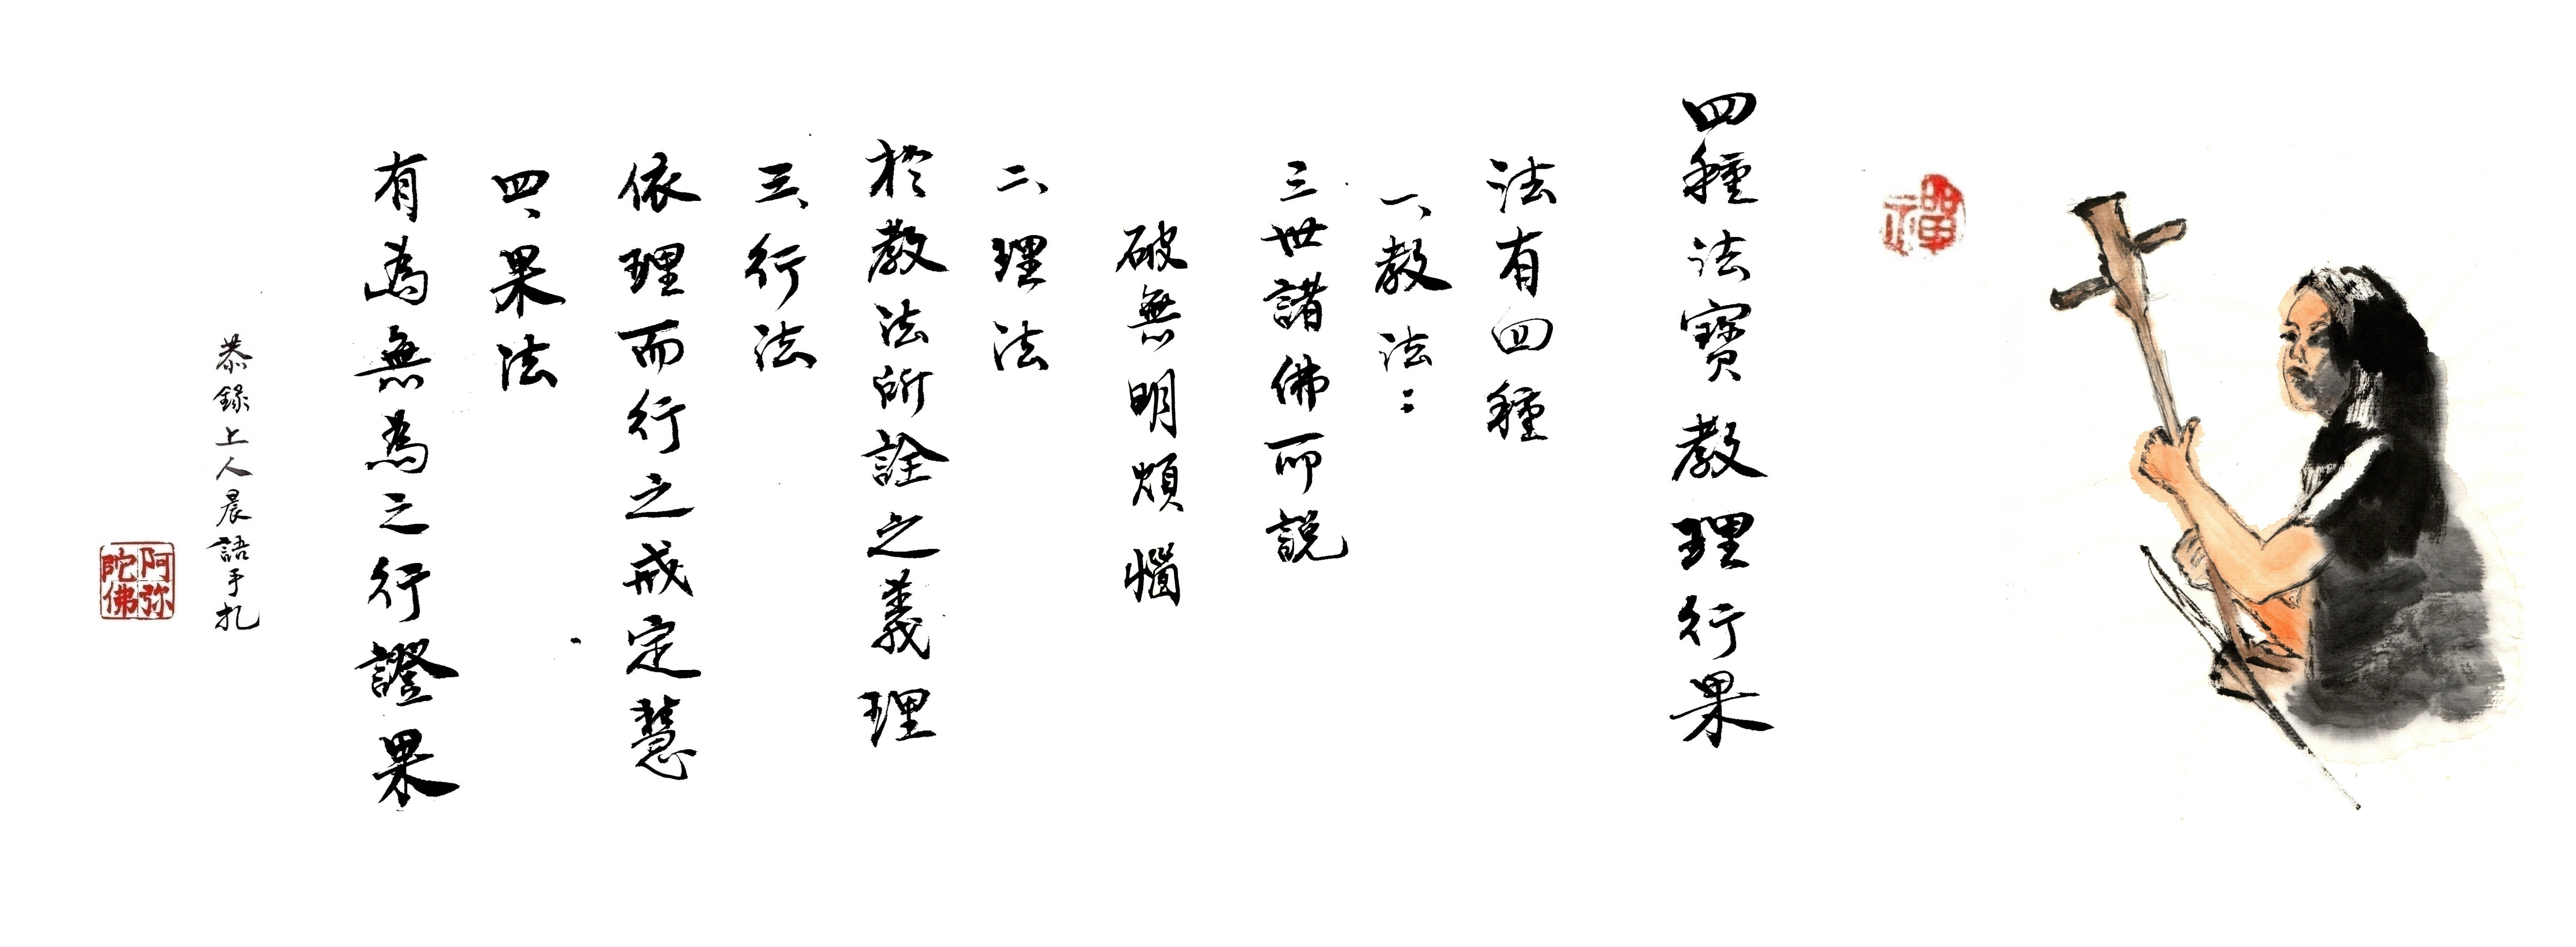 禪
四種法寶教理行果
法有四種
一、教法：
三世諸佛所說
破無明煩惱
二、理法
於教法所詮之義理
三、行法
依理而行之戒定慧
四、果法
有為無為之行證果
恭錄上人晨語手札
阿弥
陀佛